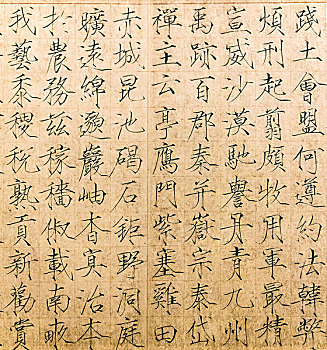 踐土會盟何遵約法韓弊
煩刑起翦頗牧用軍最精
宣威沙漠馳譽丹青九州
禹跡百郡秦并嶽宗泰岱
禪主云亭鴈門紫塞雞田
赤城昆池碣石鉅野洞庭
曠遠綿邈巖岫杳冥治本
於農務茲稼穡俶載南畝
我藝黍稷稅熟貢新勸賞